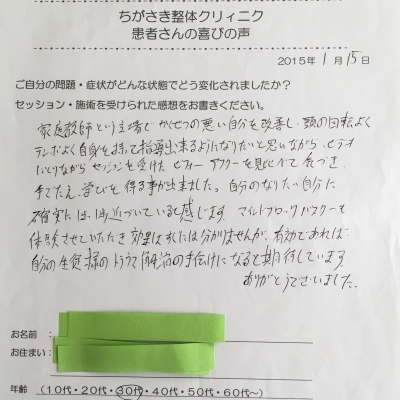 ちがさき整体クリィニク
患者さんの喜びの声
2015年 1月 15日
ご自分の問題・症状がどんな状態でどう変化されましたか？
セッション・施術を受けられた感想をお書きください。
家庭教師という立場で かつぜつの悪い自分を改善し、頭の回転よく
テンポよく自身を持って指導出来るようになりたいと思いながら、ビデオ
セッションを受けた ビフォーアフターを見比べて 気づき、
手ごたえ、学びを得る事が出来ました。自分のなりたい自分に
確実に 近づいていると感じます。マインドブロックバスターも
体験させていただき 効果はすぐには分かりませんが、有効であれば
自分の トラウマ解消の手伝けになると期待しています。
ありがとうございました。
お名前：
お住まい：
年齢 （10代・20代・30代・40代・50代・60代～）